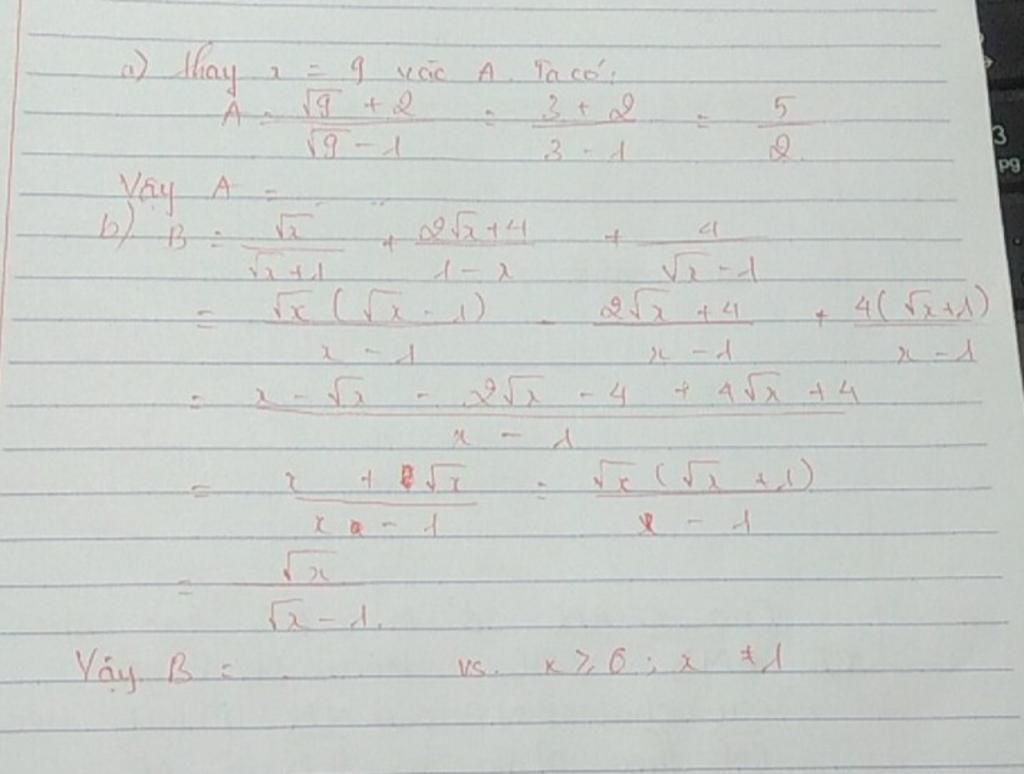 a) Thay x = 9 vào A. Ta có:
A = \frac{\sqrt{9} + 2}{\sqrt{9} - 1} = \frac{3 + 2}{3 - 1} = \frac{5}{2}
Vậy A =
b) B = \frac{\sqrt{x}}{\sqrt{x} + 1} + \frac{2\sqrt{x} + 4}{1 - x} + \frac{4}{\sqrt{x} - 1}
= \frac{\sqrt{x} (\sqrt{x} - 1)}{x - 1} - \frac{2\sqrt{x} + 4}{x - 1} + \frac{4(\sqrt{x} + 1)}{x - 1}
= \frac{x - \sqrt{x} - 2\sqrt{x} - 4 + 4\sqrt{x} + 4}{x - 1}
= \frac{x + \sqrt{x}}{x - 1} = \frac{\sqrt{x} (\sqrt{x} + 1)}{x - 1}
= \frac{\sqrt{x}}{\sqrt{x} - 1}.
Vậy B = vs. x ≥ 0 ; x ≠ 1
3
pg